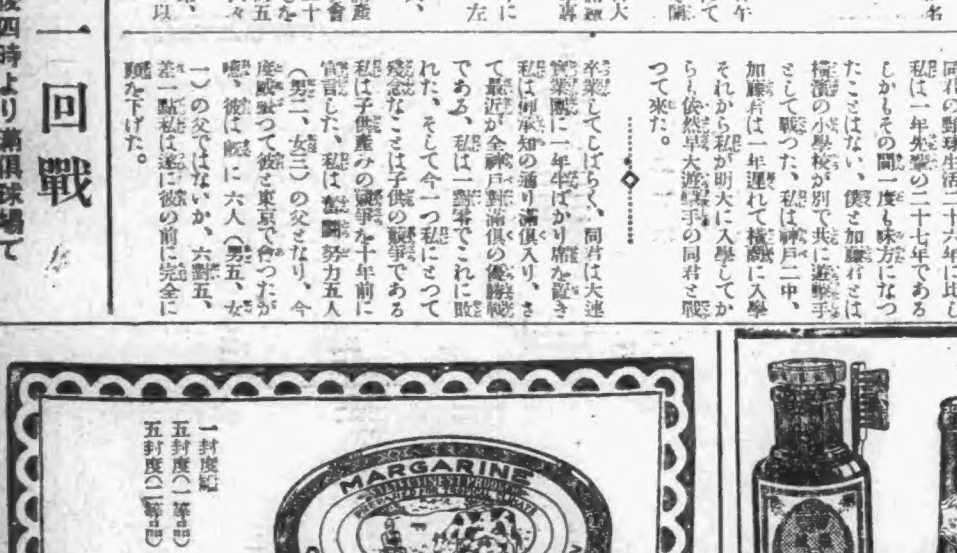 同君の野球生活二十六年に比し
私は一年先輩の二十七年である
しかもその間一度も味方になつ
たことはない、僕と加藤君とは
横濱の小學校が別で共に遊撃手
として戰つた、私は神戸二中、
加藤君は一年遅れて横商に入學
それから私が明大に入學してか
らも依然早大遊撃手の同君と戰
つて來た。
卒業してしばらく、同君は大連
實業團に一年半ばかり席を置き
私は御承知の通り滿俱入り、さ
て最近が全神戸對滿俱の優勝戰
である、私は一對零でこれに敗
れた、そして今一つ私にとつて
殘念なことは子供の競爭である
私は子供産みの競爭を十年前に
宣言した、私は奮鬪努力五人
(男二、女三)の父となり、今
度威張つて彼と東京で會つたが
噫、彼は既に六人(男五、女
一)の父ではないか、六對五、
差一點私は遂に彼の前に完全に
頭を下げた。
一回戰
後四時より滿俱球場で
MARGARINE
一封度罐
五封度(一等品)
五封度(二等品)